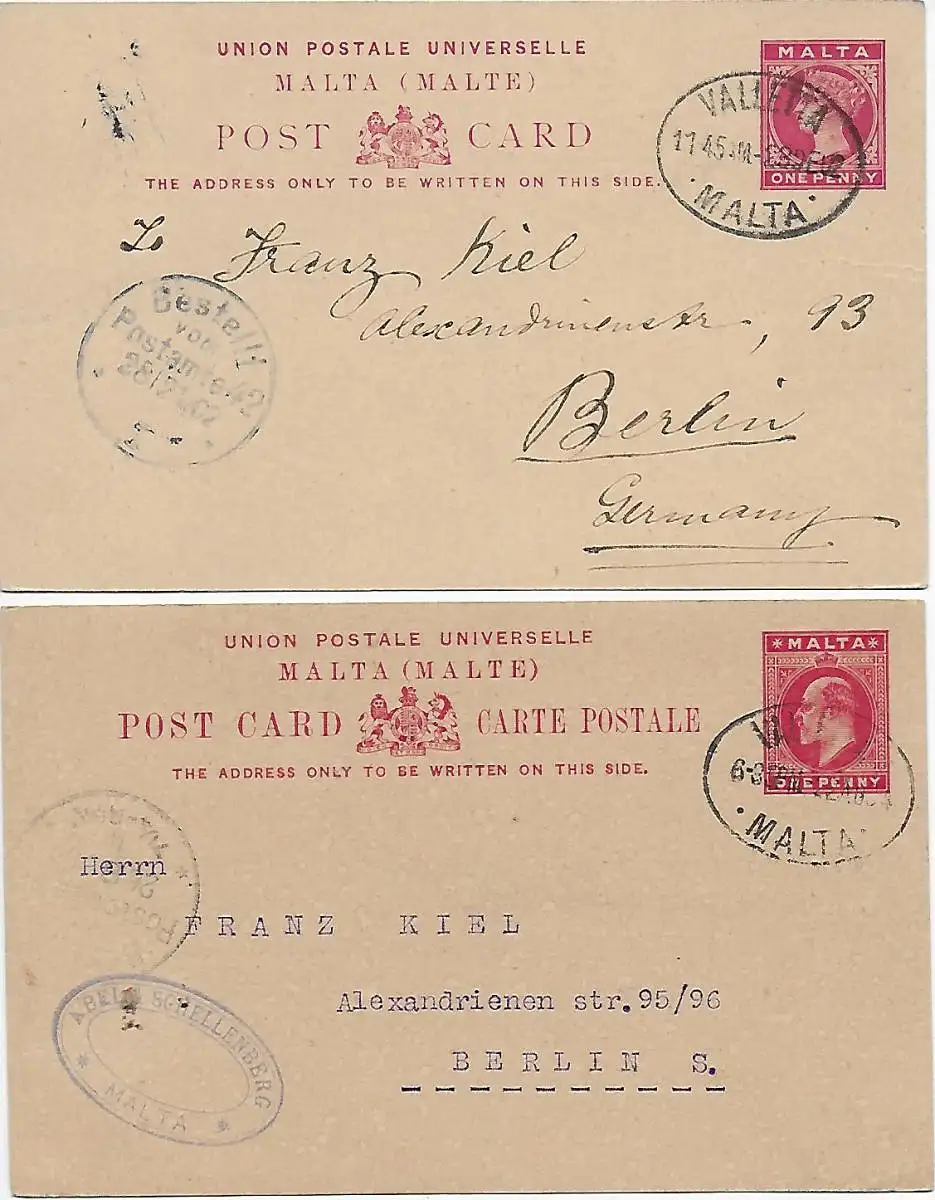 UNION POSTALE UNIVERSELLE
MALTA (MALTE)
POST CARD
THE ADDRESS ONLY TO BE WRITTEN ON THIS SIDE.
MALTA
ONE PENNY
VALLETTA
MALTA
To Franz Kiel
Alexandrinenstr, 93
Berlin
Germany
Bestellt
vom
Postamte 42
UNION POSTALE UNIVERSELLE
MALTA (MALTE)
POST CARD CARTE POSTALE
THE ADDRESS ONLY TO BE WRITTEN ON THIS SIDE.
*MALTA*
ONE PENNY
MALTA
Herrn
FRANZ KIEL
Alexandrienen str. 95/96
BERLIN S.
ABELA SCHELLENBERG
* MALTA *